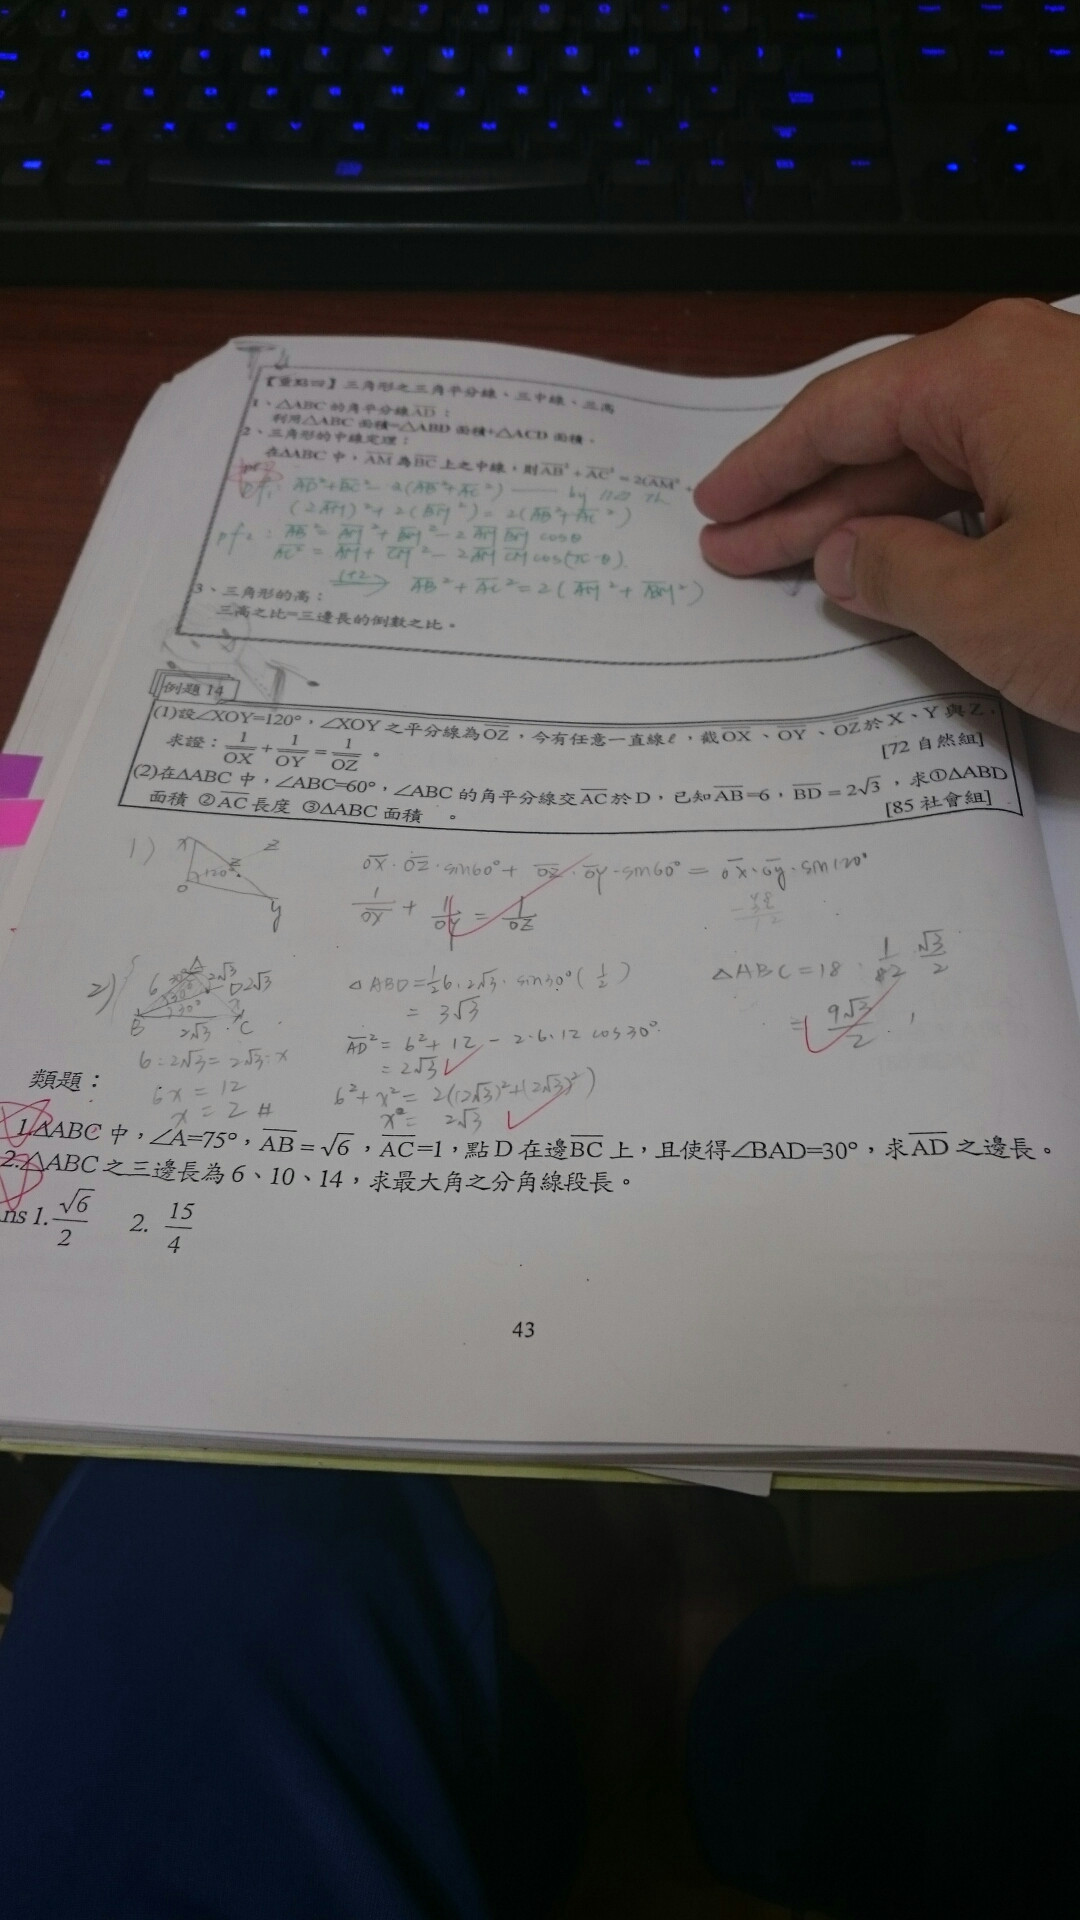 【重點四】三角形之三角平分線、三中線、三高
1、△ABC 的角平分線AD：
利用△ABC 面積=△ABD 面積+△ACD 面積。
2、三角形的中線定理：
在△ABC 中，AM 為BC 上之中線，則AB² + AC² = 2(AM² +
AD²+BC² = 2(AB²+AC²) by
(2AM)²+2(BM²)=2(AB²+AC²)
pf2： AB² = AM² + BM² - 2 AM BM cosθ
AC² = AM + CM² - 2 AM CM cos(π-θ).
1+2 AB² + AC² = 2 ( AM² + BM² )
3、三角形的高：
三高之比=三邊長的倒數之比。
例題 14
(1)設∠XOY=120°，∠XOY 之平分線為OZ，今有任意一直線ℓ，截OX、OY、OZ於 X、Y 與 Z，
求證：1/OX + 1/OY = 1/OZ。 [72 自然組]
(2)在△ABC 中，∠ABC=60°，∠ABC 的角平分線交AC於 D，已知AB=6，BD = 2√3，求①△ABD
面積 ②AC長度 ③△ABC 面積 。 [85 社會組]
1) X Z Z 120° O Y
OX · OZ · sin60° + OZ · OY · sin60° = OX · OY · sin120°
1/OX + 1/OY = 1/OZ
2) A 6 2√3 D 2√3 30° B 2√3 C
△ABD = 1/2 6 · 2√3 · sin30° (1/2)
= 3√3
△ABC = 18 · 1/2 · √3/2
= 9√3/2
AD² = 6² + 12 - 2·6·12 cos30°
= 2√3
6 : 2√3 = 2√3 : x
6x = 12
x = 2 #
6² + x² = 2(12√3)² + (2√3)²)
x² = 2√3
類題：
1.△ABC 中，∠A=75°，AB = √6，AC=1，點 D 在邊BC 上，且使得∠BAD=30°，求AD 之邊長。
2.△ABC 之三邊長為 6、10、14，求最大角之分角線段長。
ns 1. √6/2 2. 15/4
43